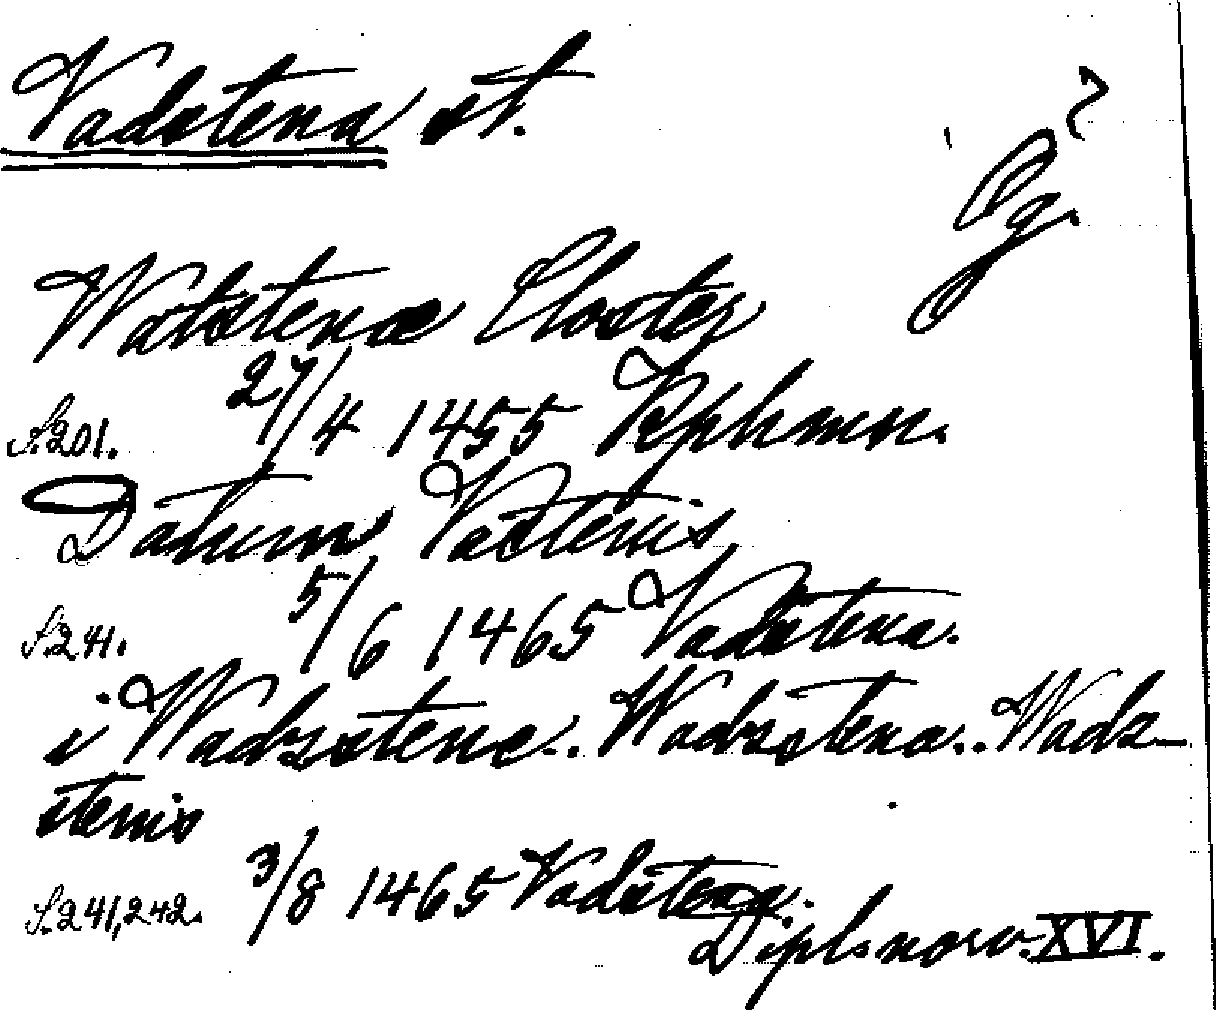 Vadstena st.
?
Ög.
Watstenæ Closter
S.201. 27/4 1455 Kphmn.
Datum Vastenis
S.241. 5/6 1465 Vadstena.
i Wadzstene.. Wadzstena.. Wadz-
stenis
S.241,242. 3/8 1465 Vadstena.
Dipl. norv. XVI.